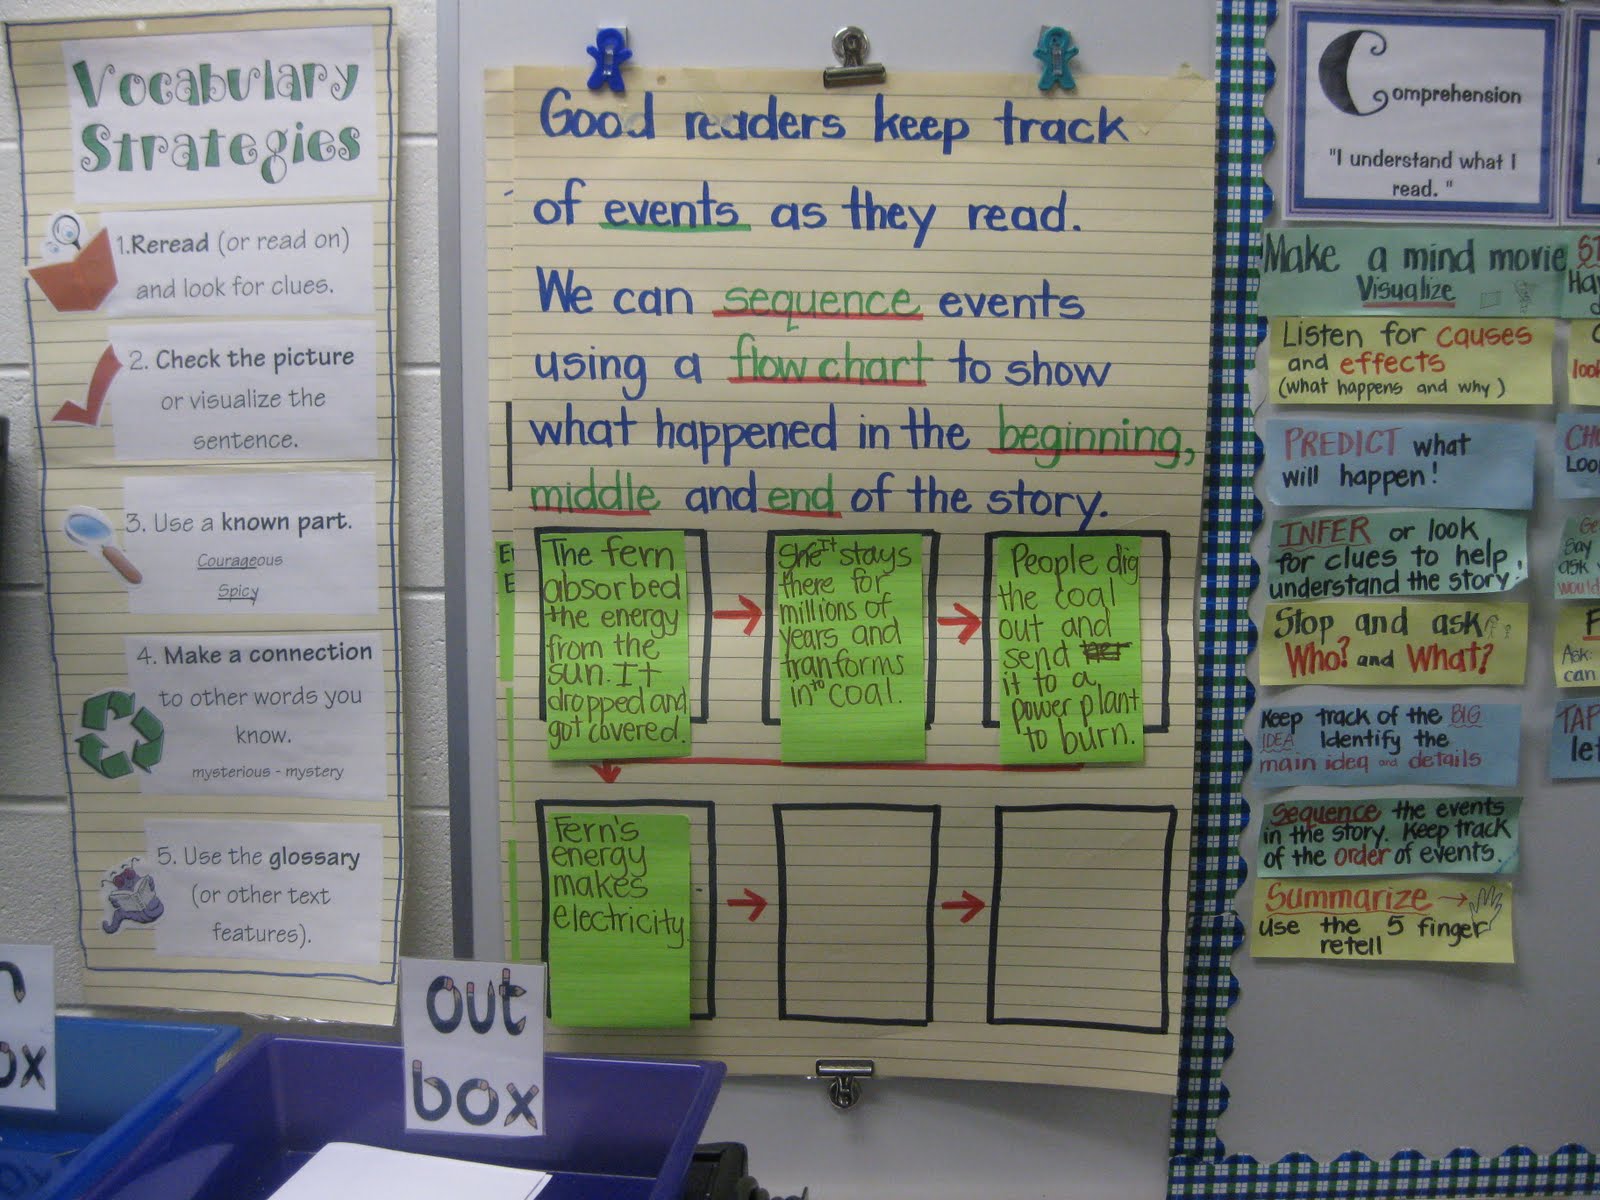 Vocabulary
Strategies
1.Reread (or read on)
and look for clues.
2. Check the picture
or visualize the
sentence.
3. Use a known part.
Courageous
Spicy
4. Make a connection
to other words you
know.
mysterious - mystery
5. Use the glossary
(or other text
features).
out
box
Good readers keep track
of events as they read.
We can sequence events
using a flow chart to show
what happened in the beginning,
middle and end of the story.
The fern
absorbed
the energy
from the
sun. It
dropped and
got covered.
She It stays
there for
millions of
years and
tranforms
into coal.
People dig
the coal
out and
send
it to a
power plant
to burn.
Fern's
energy
makes
electricity.
Comprehension
"I understand what I
read. "
Make a mind movie
Visualize
Listen for causes
and effects
(what happens and why)
PREDICT what
will happen!
INFER or look
for clues to help
understand the story!
Stop and ask
Who? and What?
Keep track of the BIG
IDEA Identify the
main idea and details
Sequence the events
in the story. Keep track
of the order of events.
Summarize →
use the 5 finger
retell